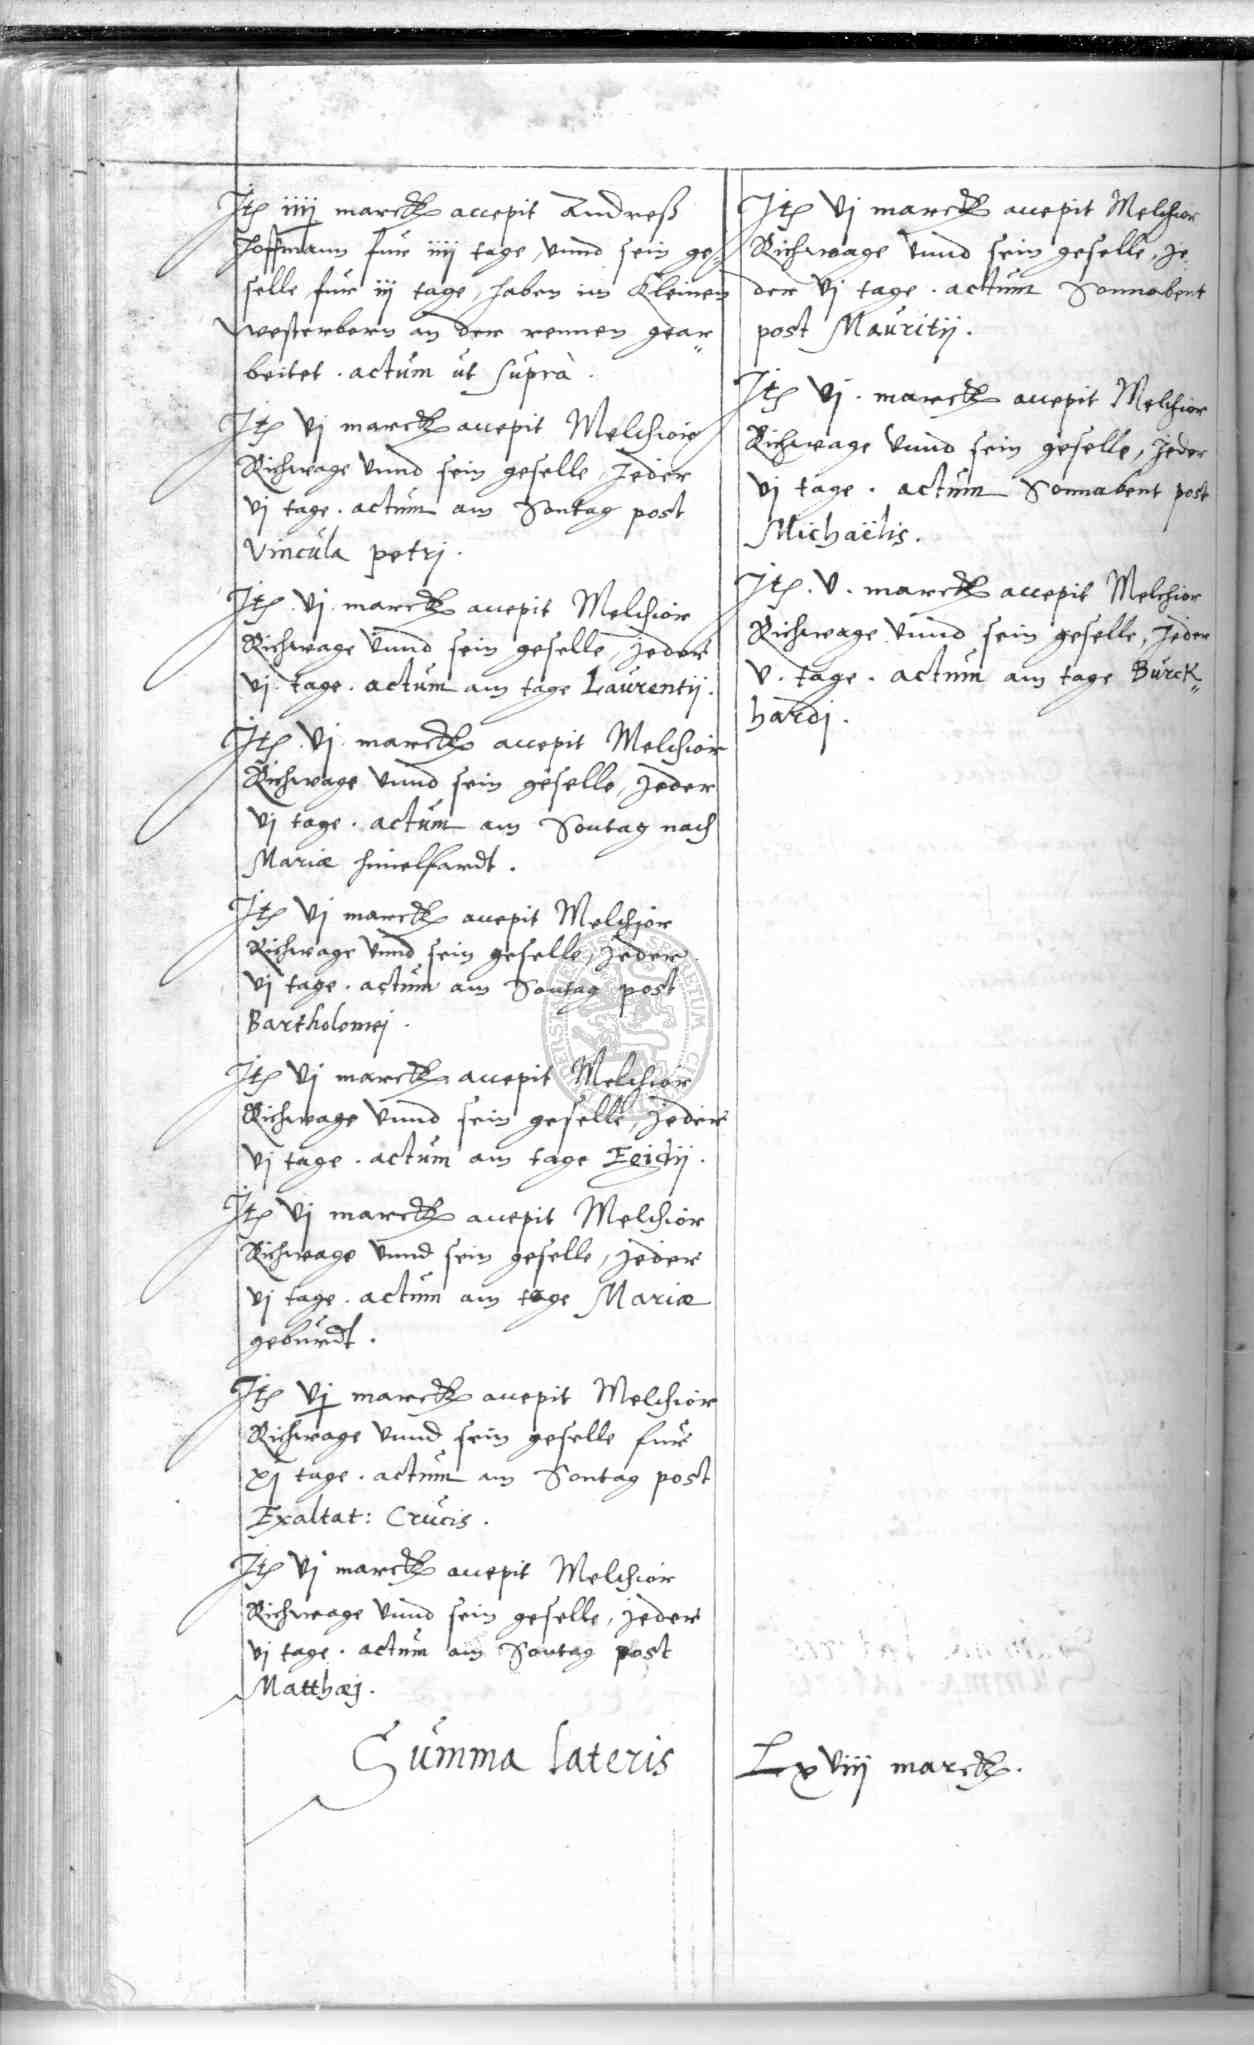 Itē iiij marck accepit Andreß
Hoffmann fur iiij tage, vnnd sein ge„
selle fur iij tage, haben im Kleinen
Westerborn an der rennen gear„
beitet. actum ut suprà.
Itē vj marck accepit Melchior
Richwage vnnd sein geselle, Jeder
vj tage. actum am Sontag post
Vincula petrj.
Itē. vj. marck accepit Melchior
Richwage vnnd sein geselle, Jeder
vj. tage. actum am tage Laurentij.
Itē. vj. marck accepit Melchior
Richwage vnnd sein geselle, Jeder
vj tage. actum am Sontag nach
Mariæ himelfardt.
Itē vj marck accepit Melchior
Richwage vnnd sein geselle, Jeder
vj tage. actum am Sontag post
Bartholomej.
Itē vj marck accepit Melchior
Richwage vnnd sein geselle, Jeder
vj tage. actum am tage Egidij.
Itē vj marck accepit Melchior
Richwage vnnd sein geselle, Jeder
vj tage. actum am tage Mariæ
geburdt.
Itē vj marck accepit Melchior
Richwage vnnd sein geselle fur
xj tage. actum am Sontag post
Exaltat: Crucis.
Itē vj marck accepit Melchior
Richwage vnnd sein geselle, Jeder
vj tage. actum am Sontag post
Matthæj.
Itē vj marck accepit Melchior
Richwage vnnd sein geselle, Je„
der vj tage. actum Sonnabent
post Mauritij.
Itē vj. marck accepit Melchior
Richwage vnnd sein geselle, Jeder
vj tage. actum Sonnabent post
Michaëlis.
Itē. v. marck accepit Melchior
Richwage vnnd sein geselle, Jeder
v. tage. actum am tage Burck„
hardj.
Summa lateris Lxviij marck.